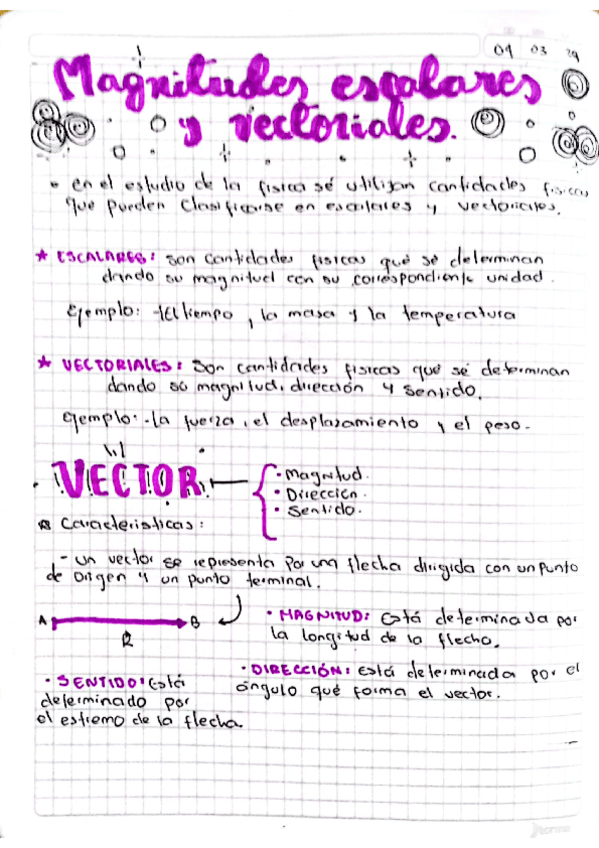 04 03 24
Magnitudes escalares
y vectoriales.
- en el estudio de la fisica sé utilizan cantidades fisicas
que pueden clasificarse en escalares y vectoriales.
* ESCALARES: son cantidades fisicas qué sé determinan
dando su magnitud con su correspondiente unidad.
Ejemplo: -El tiempo, la masa y la temperatura
* VECTORIALES: son cantidades fisicas qué sé determinan
dando su magnitud, dirección y sentido.
Ejemplo: -la fuerza, el desplazamiento y el peso.
VECTOR
· Magnitud.
· Dirección.
· Sentido.
Caracteristicas:
- un vector se representa por una flecha dirigida con un punto
de origen y un punto terminal.
A B
R
· MAGNITUD: Está determinada por
la longitud de la flecha.
· SENTIDO: Está
determinado por
el estremo de la flecha.
· DIRECCIÓN: Está determinada por el
ángulo qué forma el vector.
norma